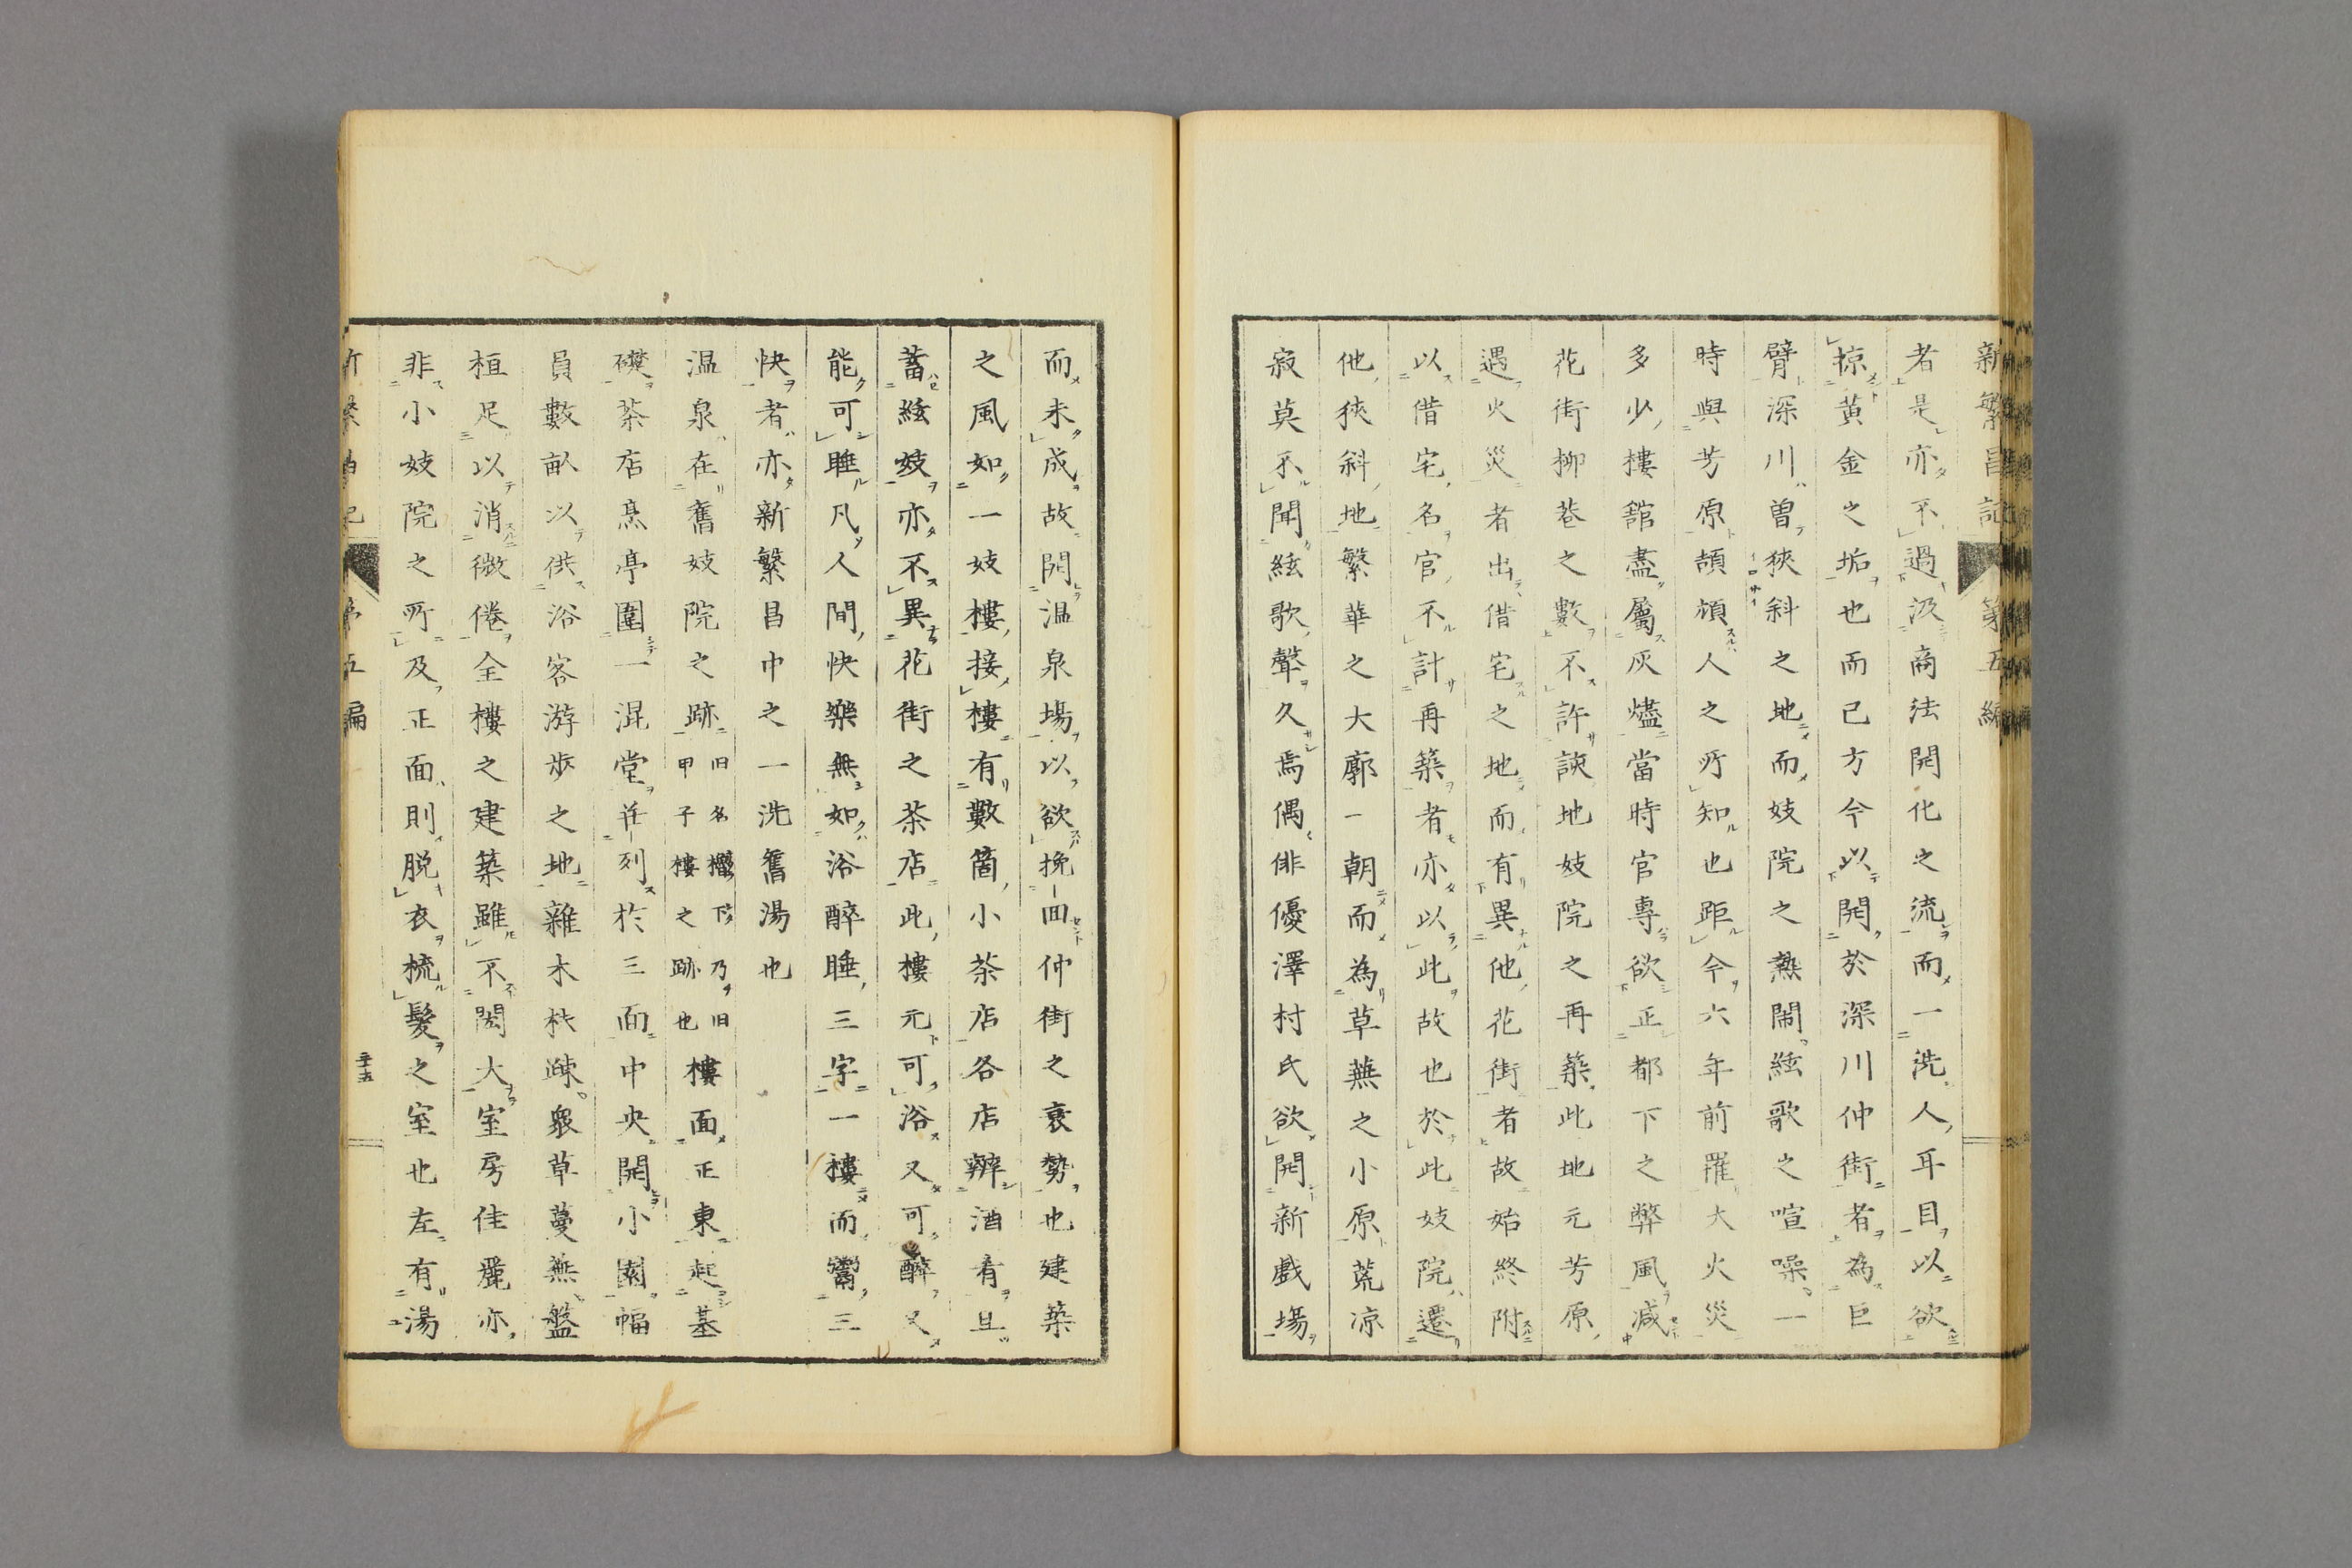 新繁昌記 第五編
者是亦不過汲商法開化之流而一洗人耳目以欲
掠黄金之垢也而已方今以開於深川仲街者為巨
臂深川曽狹斜之地而妓院之熱閙絃歌之喧噪一
時與芳原頡頏人之所知也距今六年前罹大火災
多少樓舘盡屬灰燼當時官專欲正都下之弊風減
花街柳巷之數不許諛地妓院之再築此地元芳原
遇火災者出借宅之地而有異他花街者故始終附
以借宅名官不計再築者亦以此故也於此妓院遷
他狹斜地繁華之大廓一朝而為草蕪之小原荒凉
寂莫不聞絃歌聲久焉偶俳優澤村氏欲開新戲場
而未成故開温泉場以欲挽回仲街之衰勢也建築
之風如一妓樓接樓有數箇小茶店各店辨酒肴且
蓄絃妓亦不異花街之茶店此樓元可浴又可醉又
能可睡凡人間快樂無如浴醉睡三字一樓而鬻三
快者亦新繁昌中之一洗舊湯也
温泉在舊妓院之跡旧名櫓下乃旧甲子樓之跡也樓面正東起基
礎茶店烹亭圍一混堂荘列於三面中央開小園幅
員數畝以供浴客游步之地雜木枎疎衆草蔓蕪盤
桓足以消微倦全樓之建築雖不閎大室房佳麗亦
非小妓院之所及正面則脱衣梳髮之室也左有湯
新繁昌記 第五編 三十五